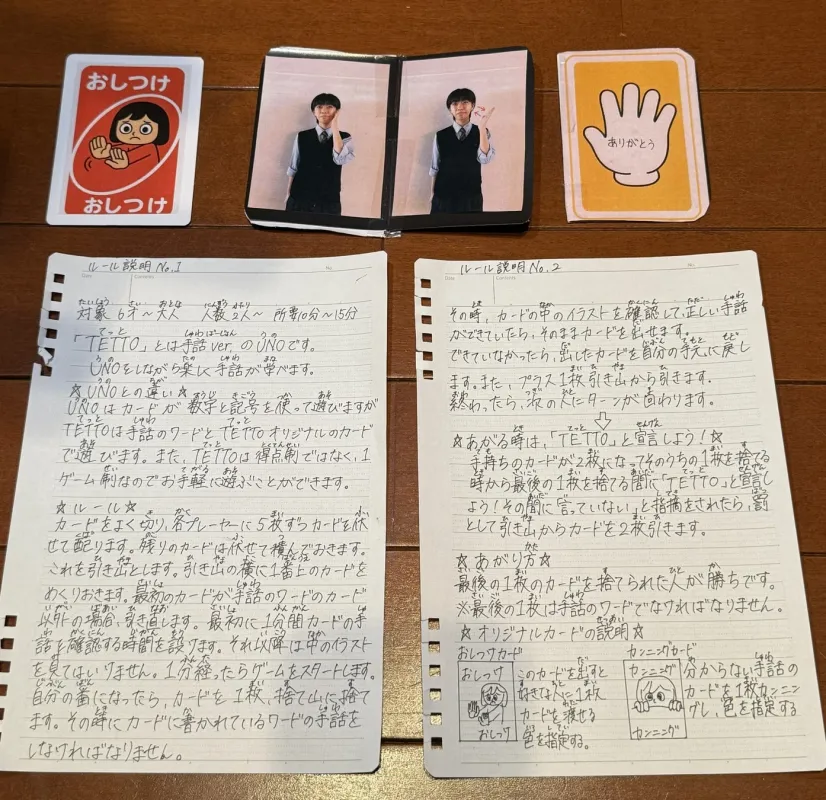 おしつけ
おしつけ
ありがとう
ルール説明 No.1
対象 6才～大人 人数 2人～ 所要10分～15分
「TETTO」とは手話ver.のUNOです。
UNOをしながら楽しく手話が学べます。
☆UNOとの違い☆
UNOはカードが数字と記号を使って遊びますが
TETTOは手話のワードとTETTOオリジナルのカード
で遊びます。また、TETTOは得点制ではなく、1
ゲーム制なのでお手軽に遊ぶことができます。
☆ルール☆
カードをよく切り、各プレーヤーに5枚ずつカードを伏
せて配ります。残りのカードは伏せて積んでおきます。
これを引き山とします。引き山の横に1番上のカードを
めくりおきます。最初のカードが手話のワードのカード
以外の場合、引き直します。最初に1分間カードの手
話を確認する時間を設けます。それ以降は中のイラスト
を見てはいけません。1分経ったらゲームをスタートします。
自分の番になったら、カードを1枚、捨て山に捨て
ます。その時にカードに書かれているワードの手話を
しなければなりません。
ルール説明 No.2
その時、カードの中のイラストを確認して、正しい手話
ができていたら、そのままカードを出せます。
できていなかったら、出したカードを自分の手元に戻し
ます。また、プラス1枚引き山から引きます。
終わったら、次の人にターンが回わります。
☆あがる時は、「TETTO」と宣言しよう!☆
手持ちのカードが2枚になってそのうちの1枚を捨てる
時から最後の1枚を捨てる間に「TETTO」と宣言し
よう!その間に「言っていない」と指摘をされたら、罰
として引き山からカードを2枚引きます。
☆あがり方☆
最後の1枚のカードを捨てられた人が勝ちです。
※最後の1枚は手話のワードでなければなりません。
☆オリジナルカードの説明☆
おしつけカード
おしつけ
おしつけ
このカードを出すと
好きな人に1枚
カードを渡せる
色を指定する。
カンニングカード
カンニング
カンニング
分からない手話の
カードを1枚カンニン
グし、色を指定する